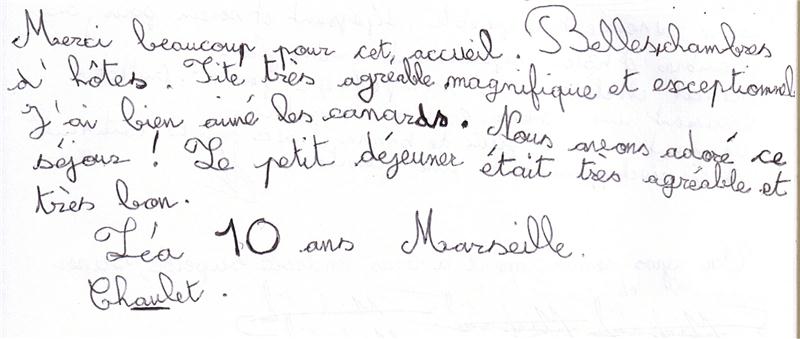 Merci beaucoup pour cet accueil. Belles chambres
d'hôtes. Site très agréable magnifique et exceptionnel
J'ai bien aimé les canards. Nous avons adoré ce
séjour ! Le petit déjeuner était très agréable et
très bon.
Léa 10 ans Marseille.
Chaulet.